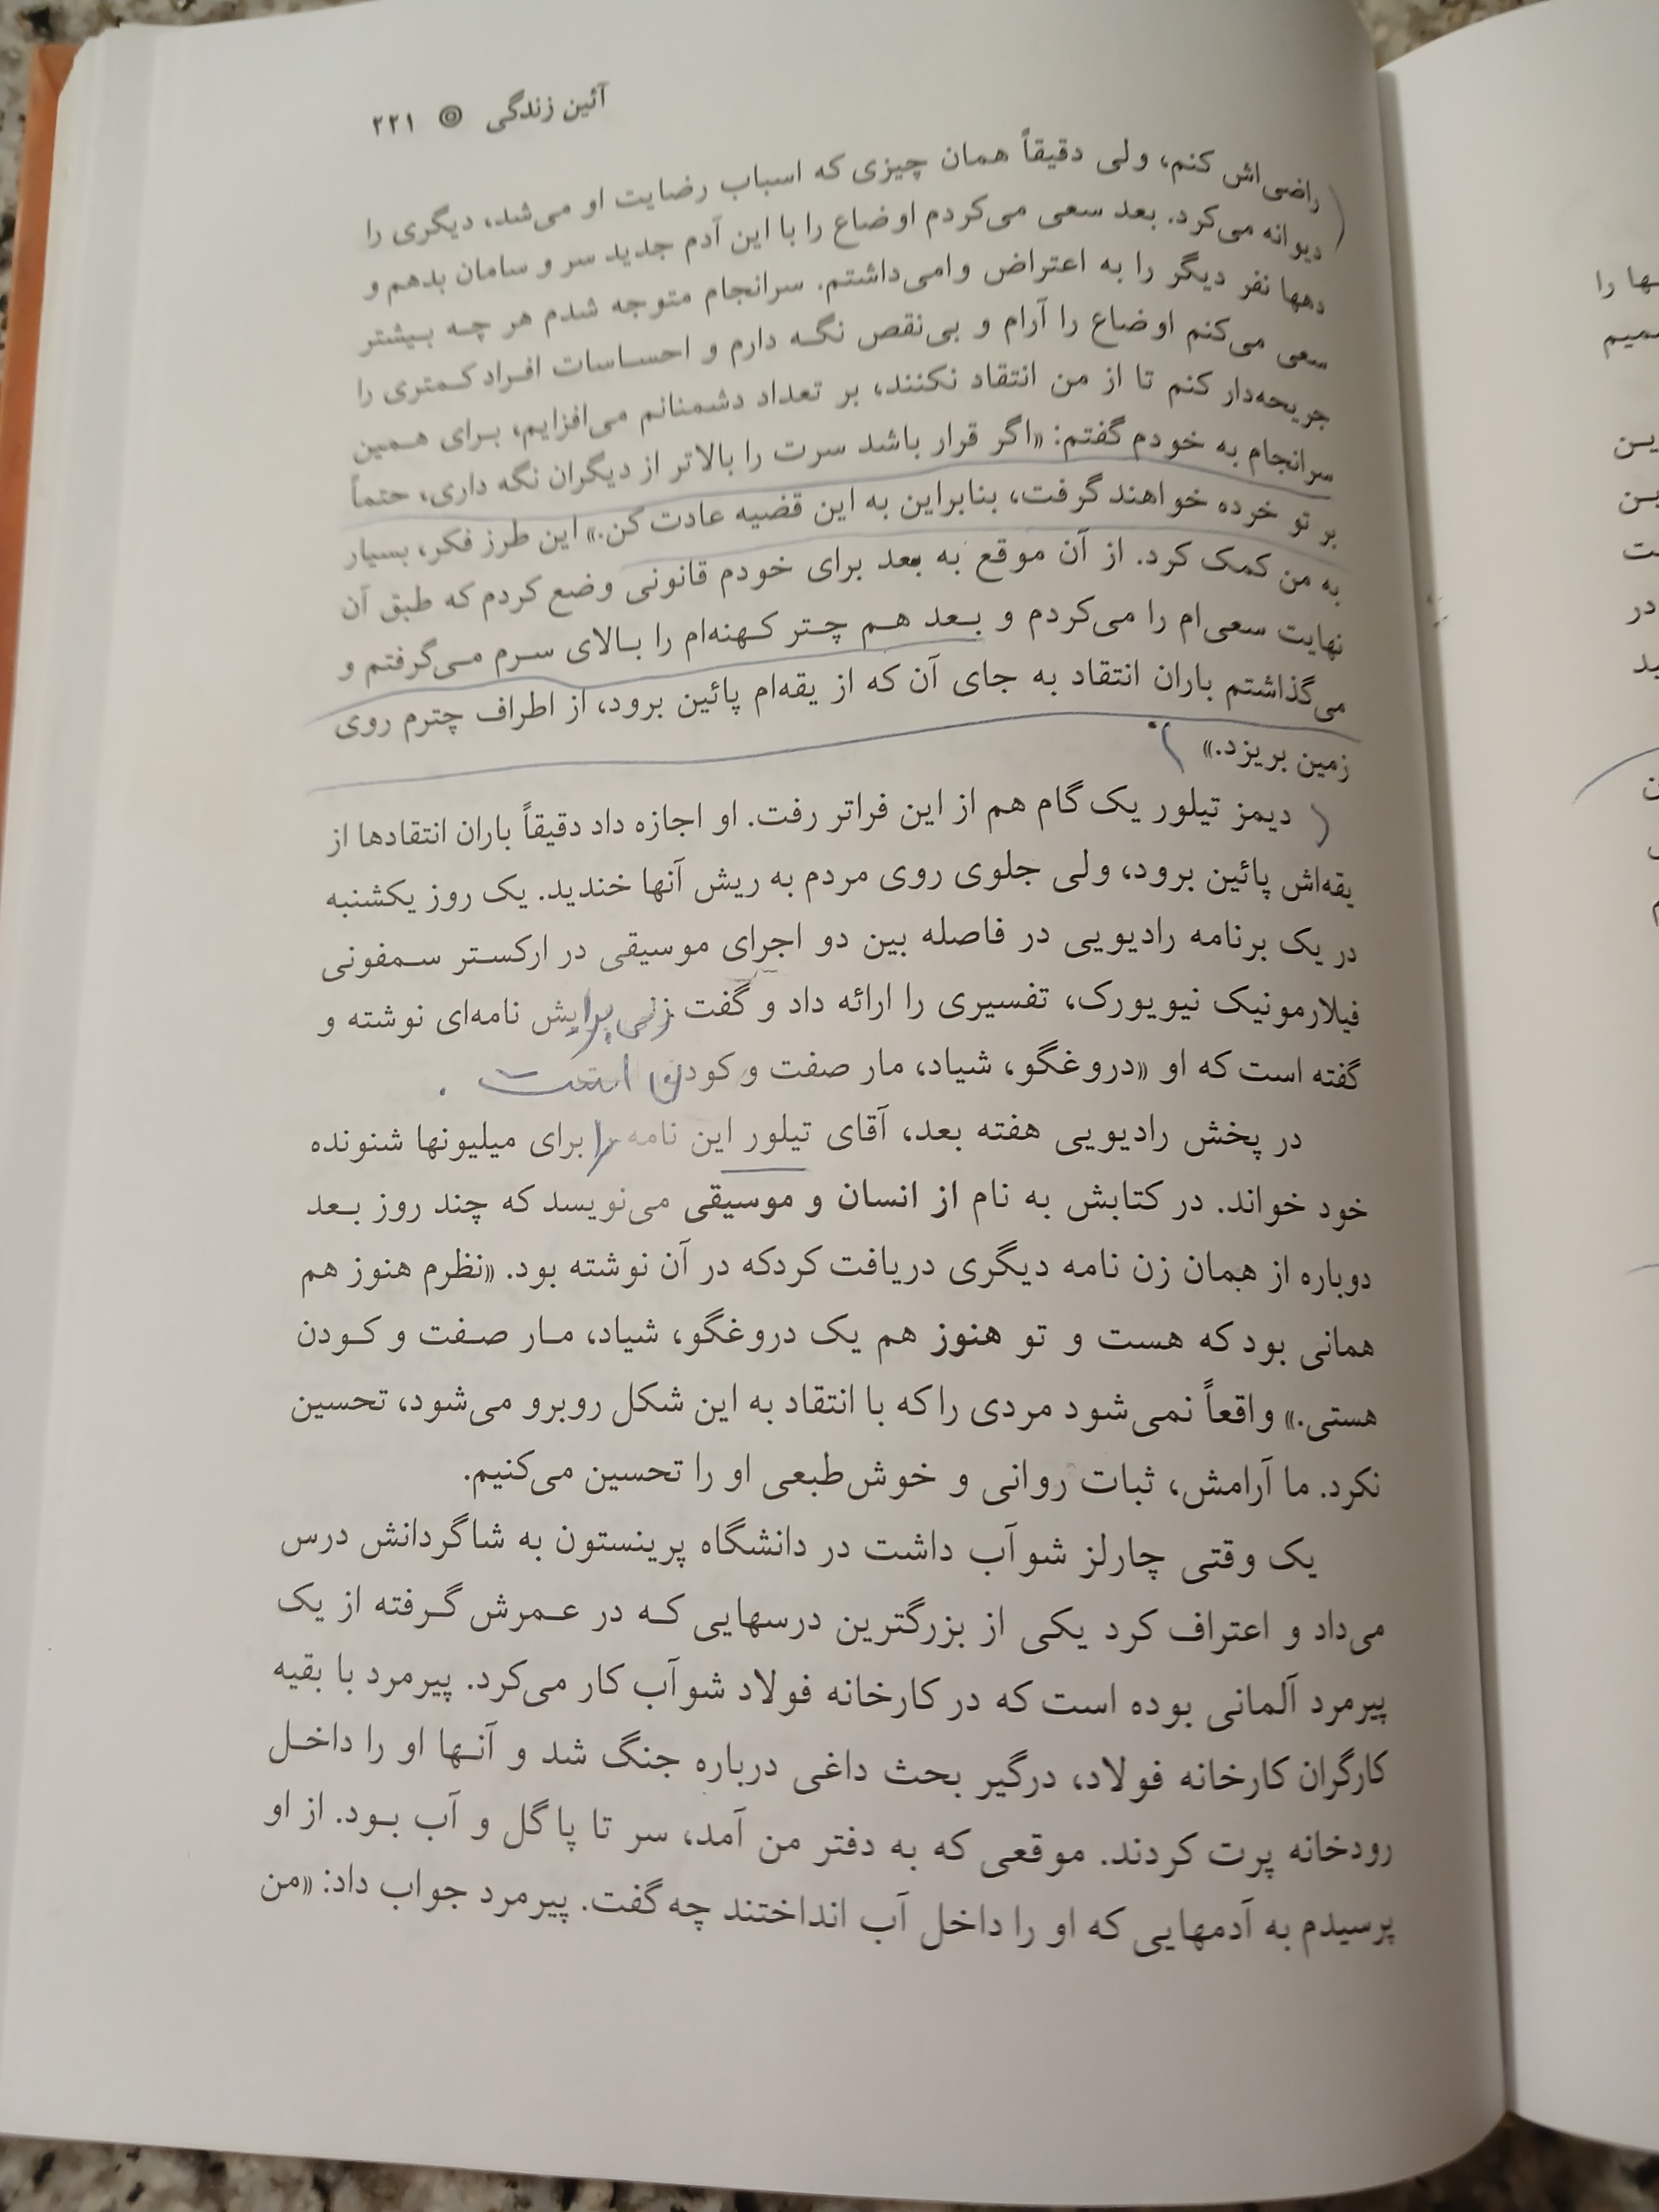 آئین زندگی ◎ ۲۲۱
راضی‌اش کنم، ولی دقیقاً همان چیزی که اسباب رضایت او می‌شد، دیگری را
دیوانه می‌کرد. بعد سعی می‌کردم اوضاع را با این آدم جدید سر و سامان بدهم و
دهها نفر دیگر را به اعتراض وامی‌داشتم. سرانجام متوجه شدم هر چه بیشتر
سعی می‌کنم اوضاع را آرام و بی‌نقص نگه دارم و احساسات افراد کمتری را
جریحه‌دار کنم تا از من انتقاد نکنند، بر تعداد دشمنانم می‌افزایم، برای همین
سرانجام به خودم گفتم: «اگر قرار باشد سرت را بالاتر از دیگران نگه داری، حتماً
بر تو خرده خواهند گرفت، بنابراین به این قضیه عادت کن.» این طرز فکر، بسیار
به من کمک کرد. از آن موقع به بعد برای خودم قانونی وضع کردم که طبق آن
نهایت سعی‌ام را می‌کردم و بعد هم چتر کهنه‌ام را بالای سرم می‌گرفتم و
می‌گذاشتم باران انتقاد به جای آن که از یقه‌ام پائین برود، از اطراف چترم روی
زمین بریزد.»
دیمز تیلور یک گام هم از این فراتر رفت. او اجازه داد دقیقاً باران انتقادها از
یقه‌اش پائین برود، ولی جلوی روی مردم به ریش آنها خندید. یک روز یکشنبه
در یک برنامه رادیویی در فاصله بین دو اجرای موسیقی در ارکستر سمفونی
فیلارمونیک نیویورک، تفسیری را ارائه داد و گفت زنی برایش نامه‌ای نوشته و
گفته است که او «دروغگو، شیاد، مار صفت و کودن است .
در پخش رادیویی هفته بعد، آقای تیلور این نامه را برای میلیونها شنونده
خود خواند. در کتابش به نام از انسان و موسیقی می‌نویسد که چند روز بعد
دوباره از همان زن نامه دیگری دریافت کردکه در آن نوشته بود. «نظرم هنوز هم
همانی بود که هست و تو هنوز هم یک دروغگو، شیاد، مار صفت و کودن
هستی.» واقعاً نمی‌شود مردی را که با انتقاد به این شکل روبرو می‌شود، تحسین
نکرد. ما آرامش، ثبات روانی و خوش‌طبعی او را تحسین می‌کنیم.
یک وقتی چارلز شوآب داشت در دانشگاه پرینستون به شاگردانش درس
می‌داد و اعتراف کرد یکی از بزرگترین درسهایی که در عمرش گرفته از یک
پیرمرد آلمانی بوده است که در کارخانه فولاد شوآب کار می‌کرد. پیرمرد با بقیه
کارگران کارخانه فولاد، درگیر بحث داغی درباره جنگ شد و آنها او را داخل
رودخانه پرت کردند. موقعی که به دفتر من آمد، سر تا پا گل و آب بود. از او
پرسیدم به آدمهایی که او را داخل آب انداختند چه گفت. پیرمرد جواب داد: «من